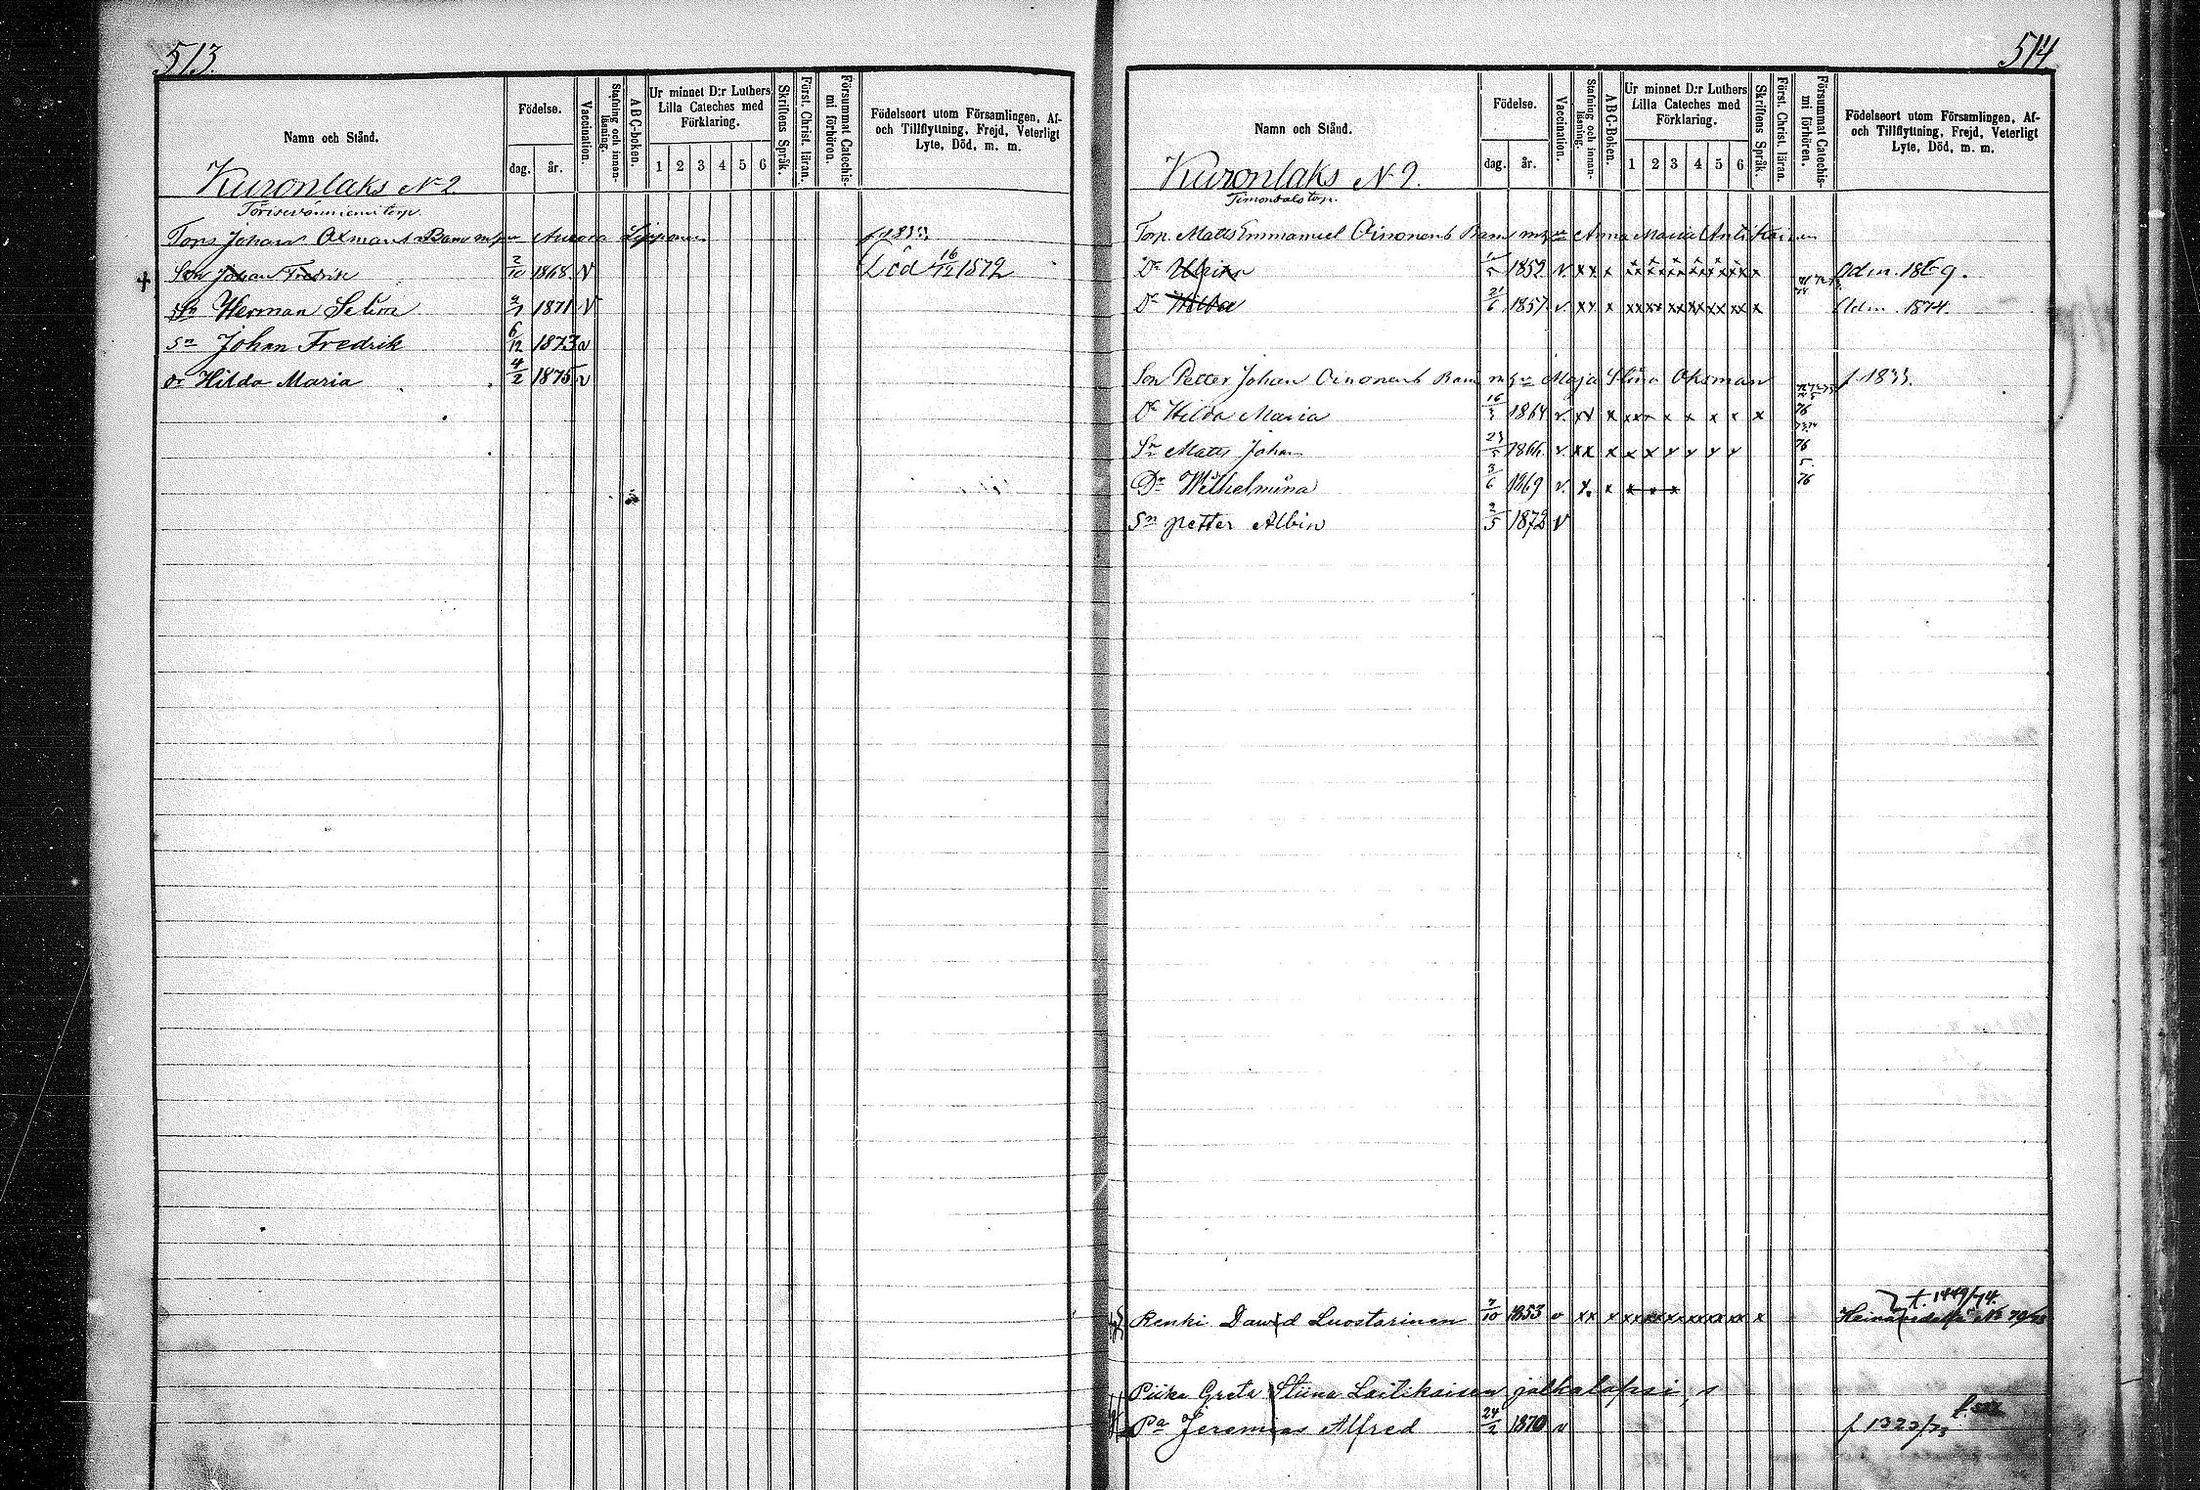 513.
Namn och Stånd.
Födelse.
dag.
år.
Vaccination.
Stafning och innan-läsning.
ABC-boken.
Ur minnet D:r Luthers Lilla Cateches med Förklaring.
1 2 3 4 5 6
Skriftens Språk.
Först. Christ. läran.
Försummat Catechis-mi förhören.
Födelseort utom Församlingen, Af- och Tillflyttning, Frejd, Veterligt Lyte, Död, m. m.
Kuronlaks N 2
Torp Johan Oxmans Barn m h u Aurora Lipponen
Son Johan Fredrik 2/10 1868 v Död 16/12 1872
Sn Herman Selim 1871 v
Sn Johan Fredrik 6/12 1873 v
Dr Hilda Maria 4/2 1875 v
514
Namn och Stånd.
Födelse.
dag.
år.
Vaccination.
Stafning och innan-läsning.
ABC-Boken.
Ur minnet D:r Luthers Lilla Cateches med Förklaring.
1 2 3 4 5 6
Skriftens Språk.
Först. Christ. läran.
Försummat Catechis-mi förhören.
Födelseort utom Församlingen, Af- och Tillflyttning, Frejd, Veterligt Lyte, Död, m. m.
Kuronlaks N 2.
Torp. Matts Emmanuel Oinonens Barn m h u Anna Maria Antikainen
Dr 1852 v xx x Adm. 1869.
Dr Hilda 21/6 1857 v xx x Adm. 1874.
Son Petter Johan Oinonens Barn m h u Maja Stina Oksman f. 1833.
Dr Hilda Maria 16/3 1864 v xx x 76
Sn Matts Johan 1866 v xx x x x x x x x 76
Dr Wilhelmina 3/6 1869 v x x x x x 76
Sn Petter Albin 2/5 1872 v
Renki Dawid Luostarinen 7/10 1853 v xx x
Piika Greta Stiina Laitikaisen jalkalapsi,
Pa Jeremias Alfred 24/2 1870 v f 1323/73